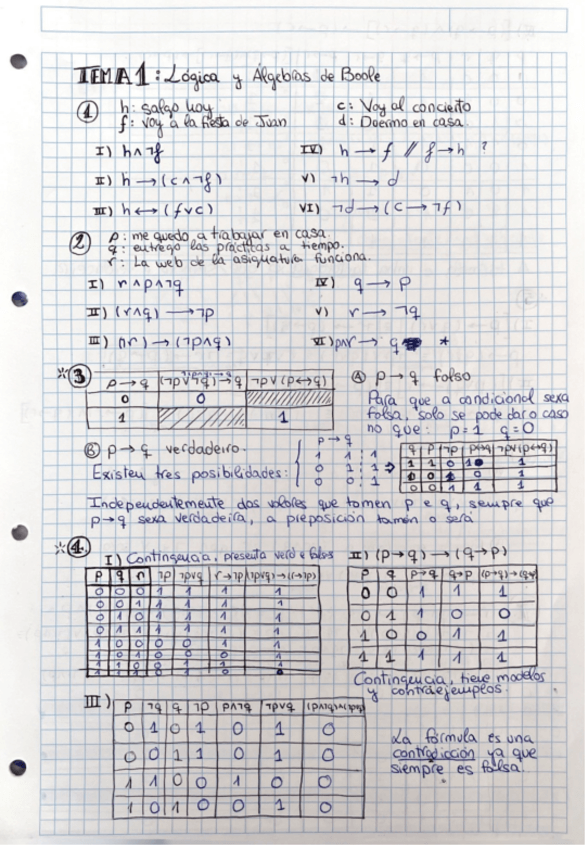 TEMA 1: Lógica y Álgebras de Boole
① h: salgo hoy c: Voy al concierto
f: voy a la fiesta de Juan d: Duermo en casa.
I) h∧¬f IV) h → f // f → h ?
II) h → (c∧¬f) V) ¬h → d
III) h ↔ (f∨c) VI) ¬d → (c → ¬f)
② p: me quedo a trabajar en casa.
q: entrego las prácticas a tiempo.
r: La web de la asignatura funciona.
I) r∧p∧¬q IV) q → p
II) (r∧q) → ¬p V) r → ¬q
III) (¬r) → (¬p∧q) VI) p∧r → q *
③ p → q (¬p∨¬q) → q ¬p∨(p↔q)
0 0
1 1
Ⓐ p → q falso
Para que a condicional sexa
falsa, solo se pode dar o caso
no que: p=1 q=0
Ⓑ p → q verdadeiro.
Existen tres posibilidades:
p → q
1 1 1
0 1 1
0 1 0
q p ¬p p↔q ¬p∨(p↔q)
1 1 0 1 1
1 0 1 0 1
0 0 1 1 1
Independentemente dos valores que tomen p e q, sempre que
p→q sexa verdadeira, a preposición tamén o será
④ I) Contingencia, presenta verd e falsos
p q r ¬p ¬p∨q r→¬p (¬p∨q)→(r→¬p)
0 0 0 1 1 1 1
0 0 1 1 1 1 1
0 1 0 1 1 1 1
0 1 1 1 1 1 1
1 0 0 0 0 1 1
1 0 1 0 0 0 1
1 1 0 0 1 1 1
1 1 1 0 1 0 0
II) (p→q) → (q→p)
p q p→q q→p (p→q)→(q→p)
0 0 1 1 1
0 1 1 0 0
1 0 0 1 1
1 1 1 1 1
Contingencia, tiene modelos
y contraejemplos.
III) p ¬q q ¬p p∧¬q ¬p∨q
0 1 0 1 0 1 0
0 0 1 1 0 1 0
1 1 0 0 1 0 0
1 0 1 0 0 1 0
La fórmula es una
contradicción ya que
siempre es falsa.